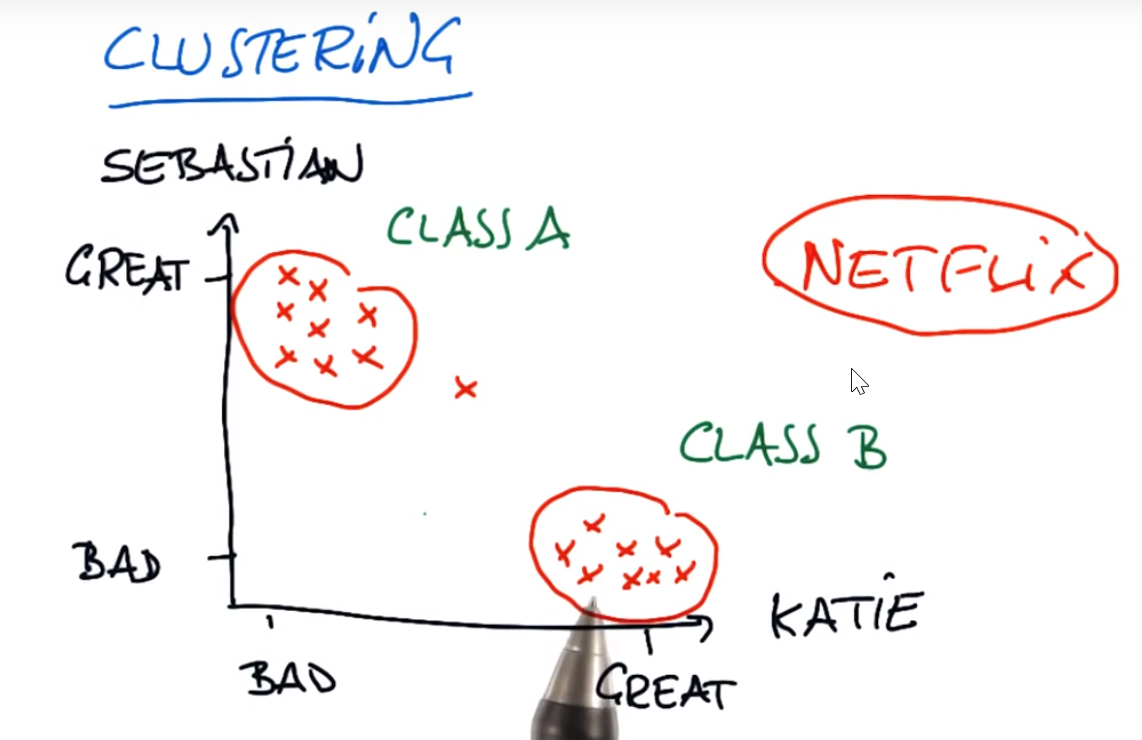 CLUSTERING
SEBASTIAN
CLASS A
GREAT
NETFLIX
CLASS B
BAD
KATIE
BAD
GREAT